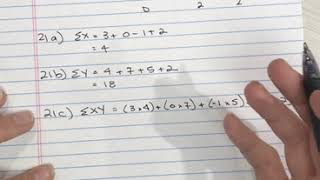 0 2 2
21a) ΣX = 3 + 0 - 1 + 2
= 4
21b) ΣY = 4 + 7 + 5 + 2
= 18
21c) ΣXY = (3×4) + (0×7) + (-1×5)